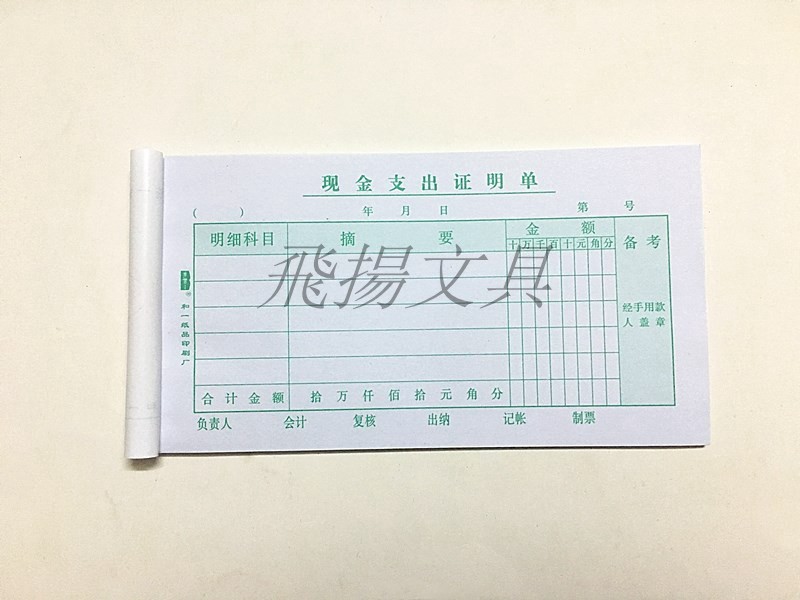 现金支出证明单
( ) 年 月 日 第 号
明细科目 摘要 金额 备考
十万千百十元角分
飛揚文具
经手用款
人盖章
和一纸品印刷厂
合计金额 拾万仟佰拾元角分
负责人 会计 复核 出纳 记帐 制票